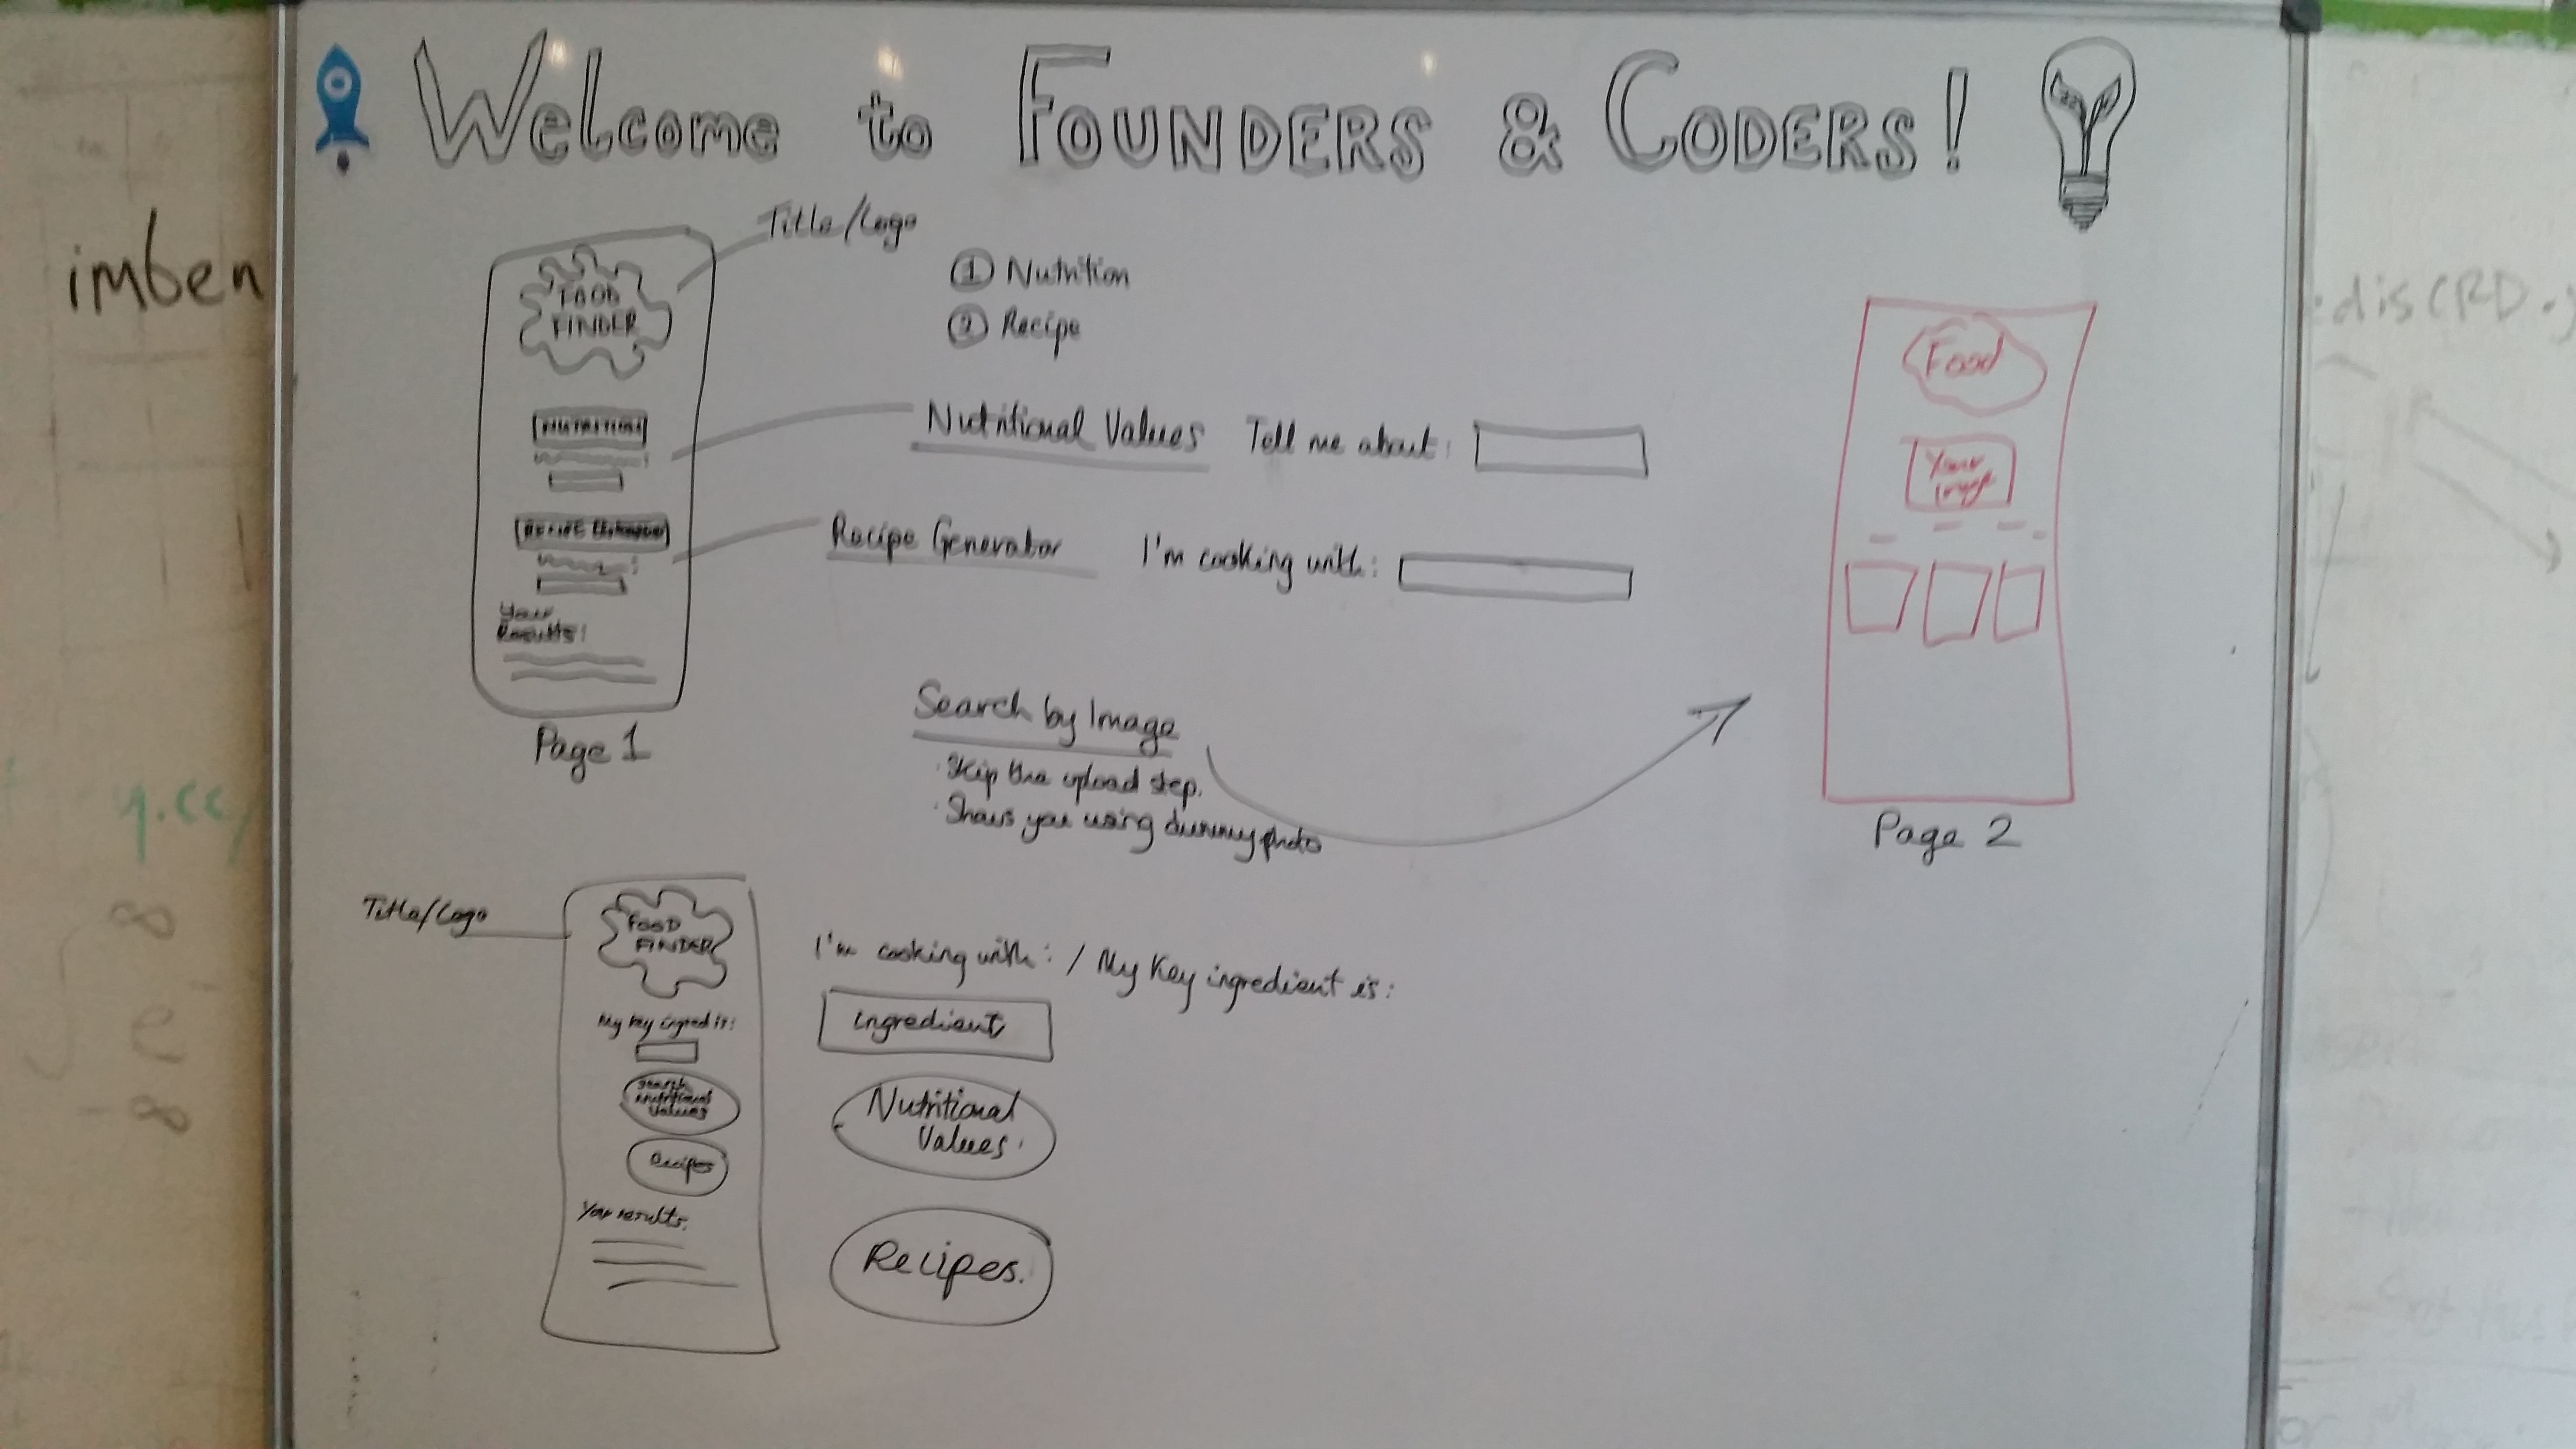 Welcome to FOUNDERS & CODERS!
imben
Title/Logo
FOOD
FINDER
① Nutrition
② Recipe
NUTRITION
Nutritional Values Tell me about:
Recipe Generator I'm cooking with:
RECIPE
Your
Results:
Page 1
Search by Image
· Skip the upload step.
· Shows you using dummy photo
Food
Your
Image
Page 2
Title/Logo
FOOD
FINDER
My key ingred is:
Search
Nutritional
Values
Recipes
Your results:
I'm cooking with: / My key ingredient is:
ingredient
Nutritional
Values.
Recipes.
q.cc/
∞
e
-∞